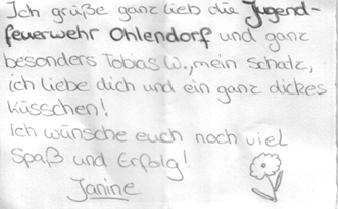 Ich grüße ganz lieb die Jugend-
feuerwehr Ohlendorf und ganz
besonders Tobias W., mein Schatz,
ich liebe dich und ein ganz dickes
küsschen!
Ich wünsche euch noch viel
Spaß und Erfolg!
Janine